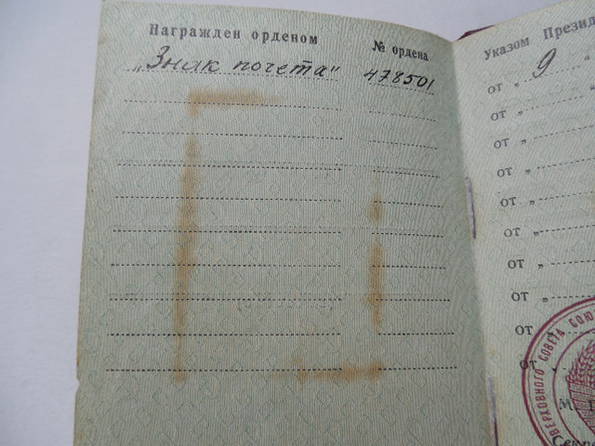 Награжден орденом № ордена
„Знак почета" 478501
Указом Презид
от „ 9 "
от „ "
от „
от „
от „
от „
от „
от „
от „
от
ВЕРХОВНОГО СОВЕТА СОЮ
М.
Секре